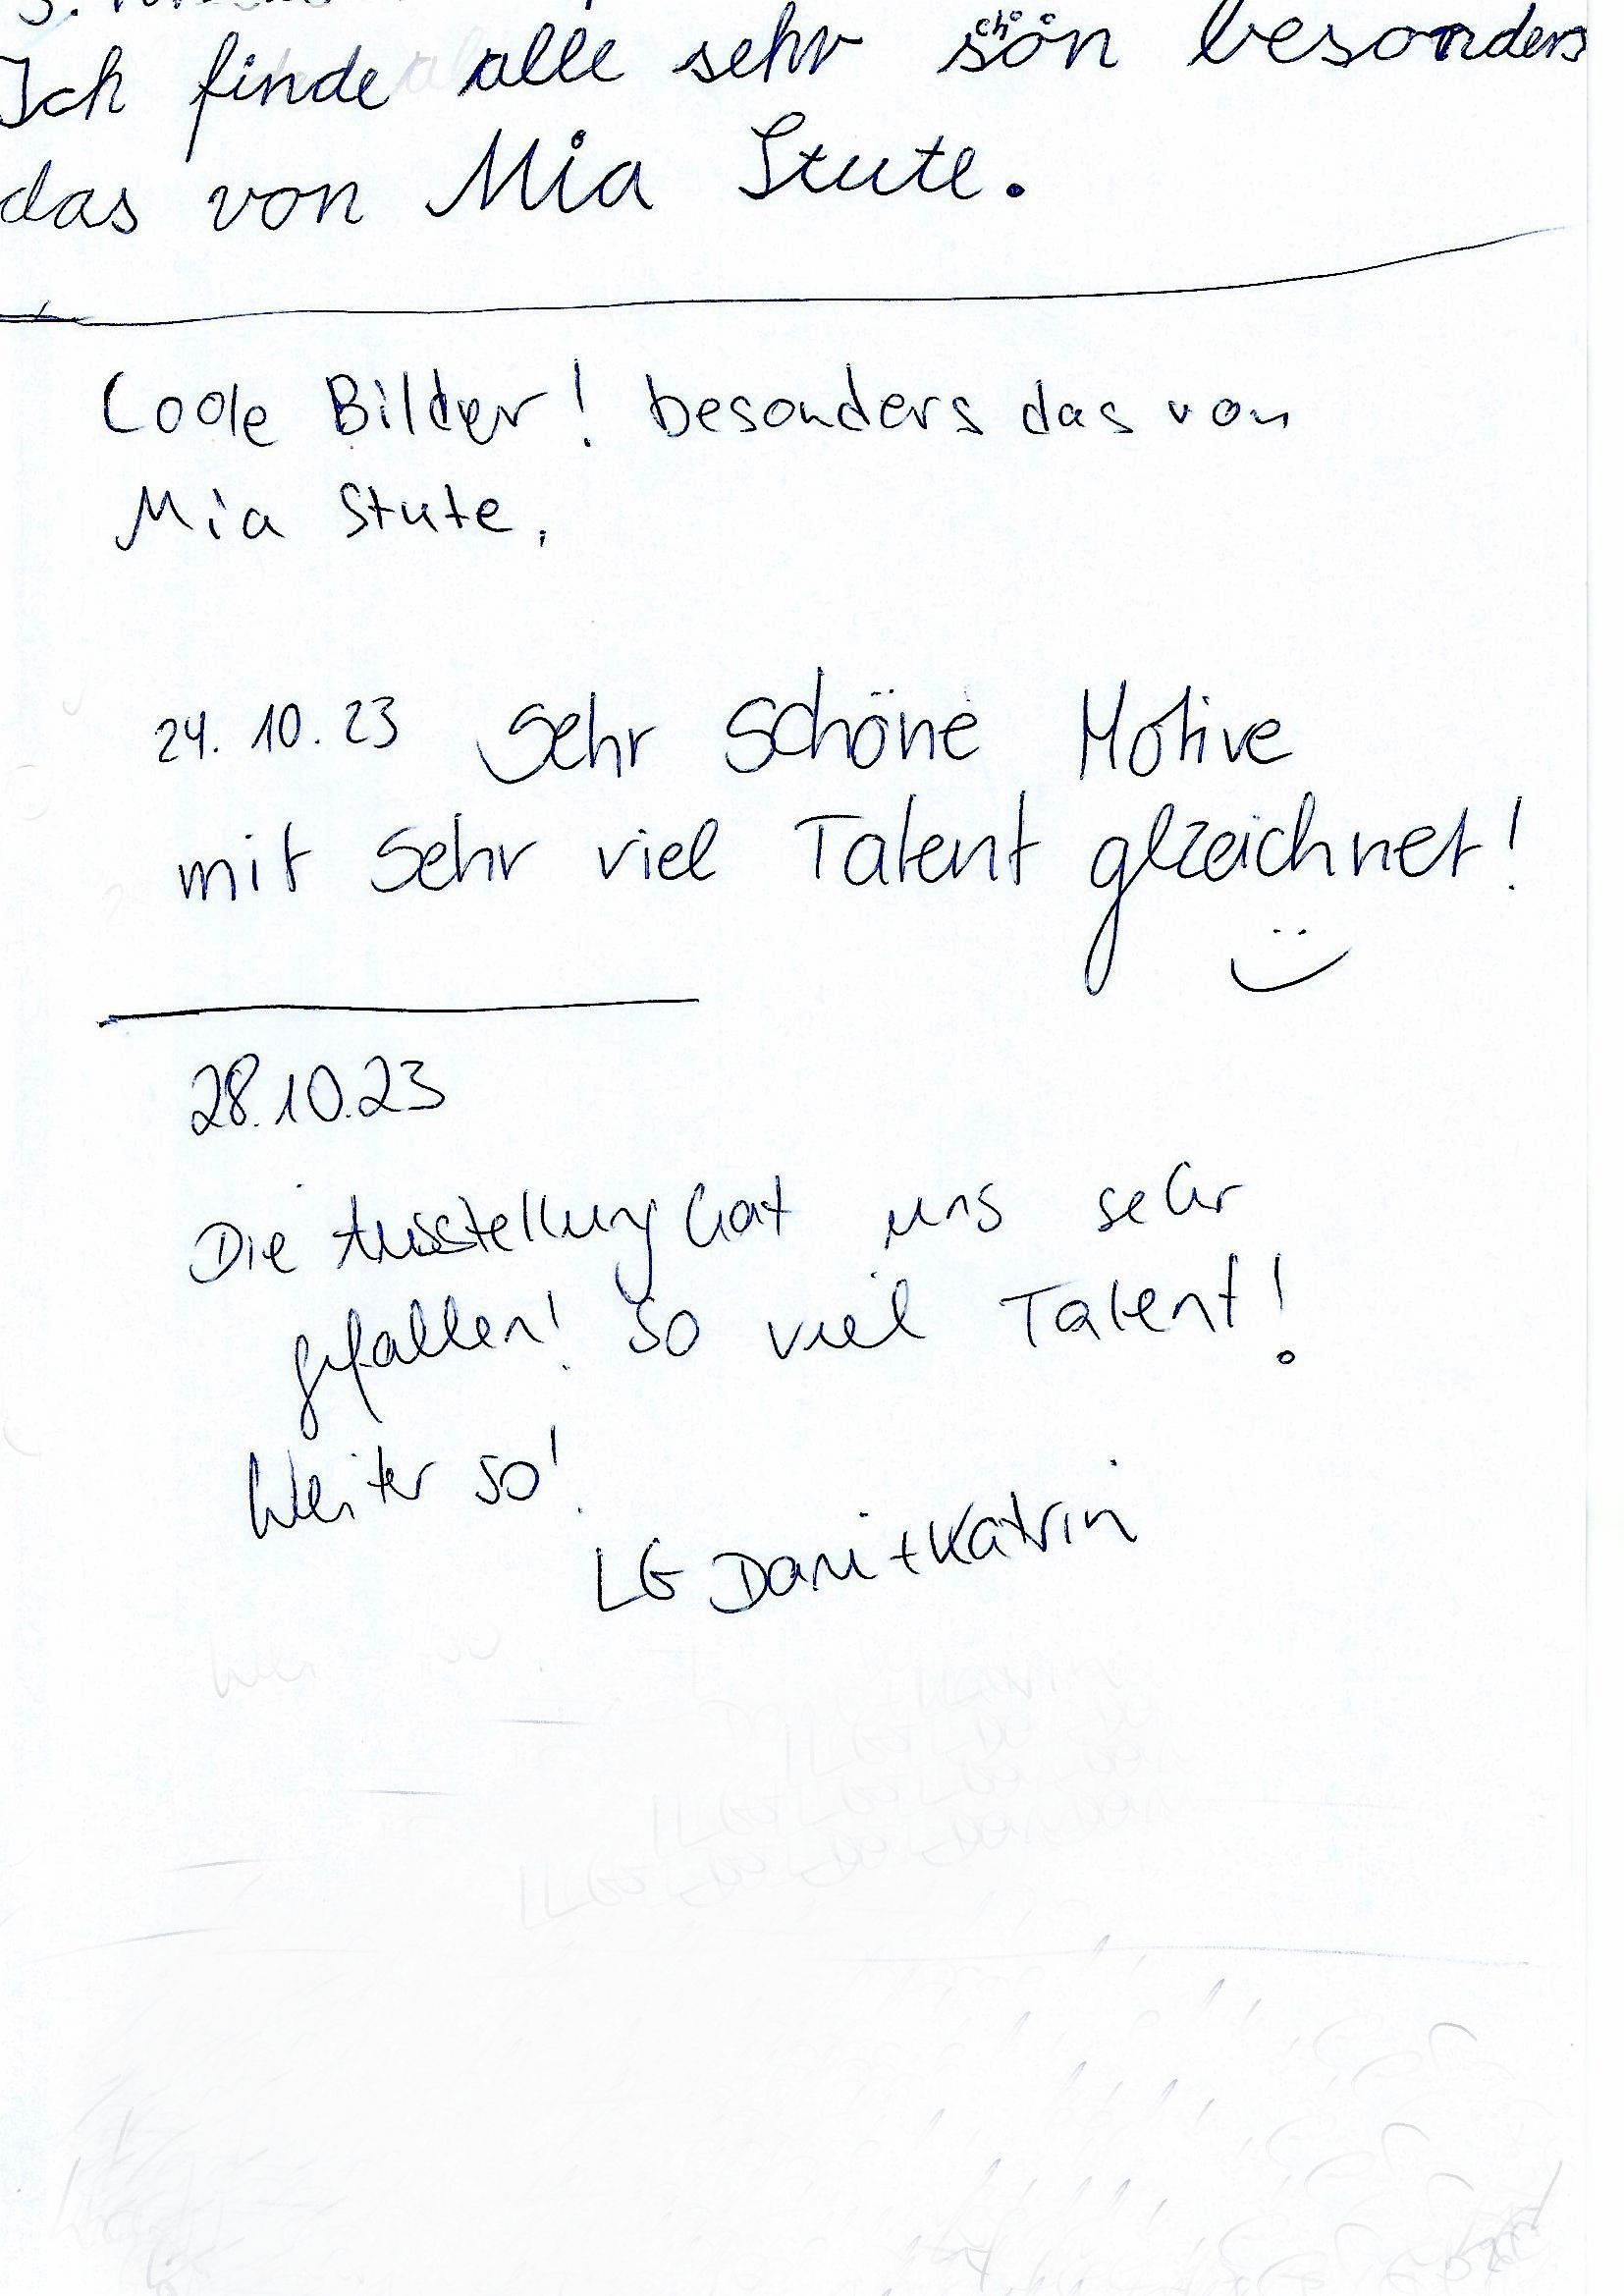 Ich finde alle sehr schön besonders
das von Mia Stute.
Coole Bilder! besonders das von
Mia Stute.
24.10.23 Sehr schöne Motive
mit sehr viel Talent gezeichnet!
28.10.23
Die Ausstellung hat uns sehr
gefallen! So viel Talent!
Weiter so!
LG Dani + Katrin